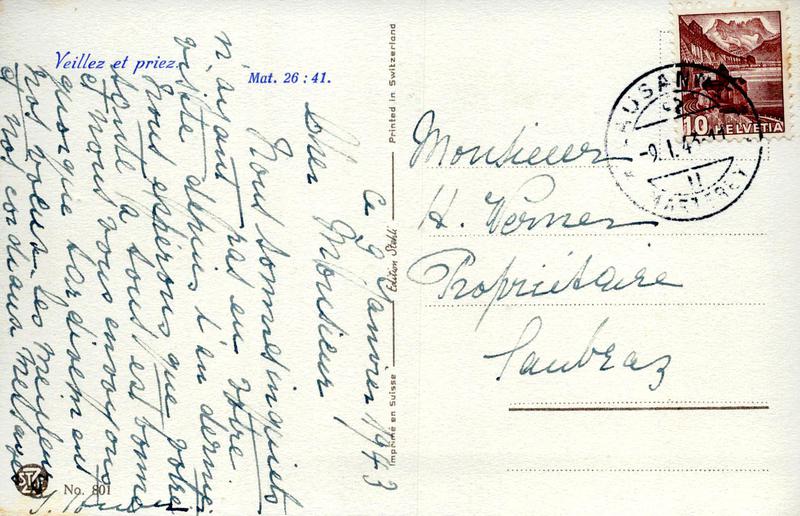 Veillez et priez.
Mat. 26 : 41.
Ce 9 Janvier 1943
Cher Monsieur
Nous sommes inquiets
n'ayant pas eu votre
visite depuis l'an dernier
Nous espérons que votre
santé à tous est bonne
et nous vous envoyons
quoique tardivement
nos voeux les meilleurs
et nos cordiaux messages
No. 801
Printed in Switzerland
Edition Stehli
Imprimé en Suisse
Monsieur
H. Werner
Propriétaire
Saubraz
10 HELVETIA
LAUSANNE
-9.I.43